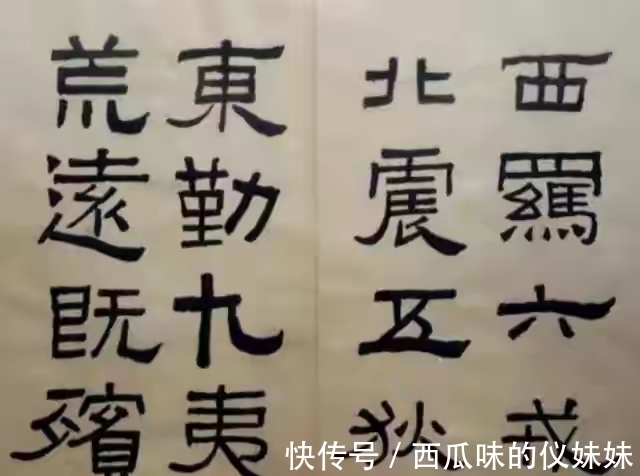 西羈六戎
北震五狄
東勤九夷
荒遠既殯
快传号 / 西瓜味的仪妹妹